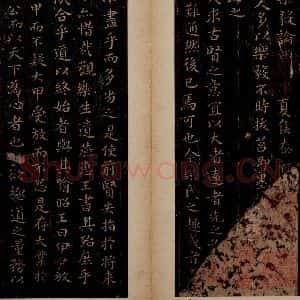 毅論 夏侯泰
人多以樂毅不時拔莒即
之
求古賢之意宜以大者遠者先之
難通然後已焉可也今樂氏之趣或者
盡乎而多劣之是使前賢失指於將来
惜哉觀樂生遺燕惠王書其殆庶乎
合乎道以終始者與其喻昭王曰伊尹放
甲而不疑大甲受放而不怨是存大業於
公而以天下為心者也夫欲極道之量務以
Shufawang.CN